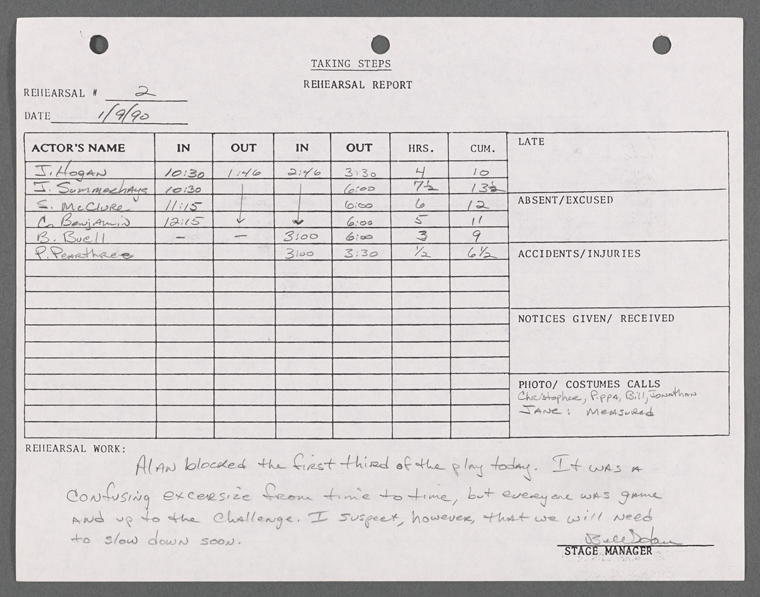 TAKING STEPS
REHEARSAL REPORT
REHEARSAL # 2
DATE 1/9/90
ACTOR'S NAME IN OUT IN OUT HRS. CUM.
J. Hogan 10:30 1:46 2:46 3:30 4 10
J. Summerhays 10:30 6:00 7½ 13½
S. McClure 11:15 6:00 6 12
C. Benjamin 12:15 6:00 5 11
B. Buell — — 3:00 6:00 3 9
P. Pearthree 3:00 3:30 ½ 6½
LATE
ABSENT/EXCUSED
ACCIDENTS/INJURIES
NOTICES GIVEN/ RECEIVED
PHOTO/ COSTUMES CALLS
Christopher, Pippa, Bill, Jonathan
JANE: MEASURED
REHEARSAL WORK:
Alan blocked the first third of the play today. It was a
confusing excersize from time to time, but everyone was game
and up to the challenge. I suspect, however, that we will need
to slow down soon.
STAGE MANAGER